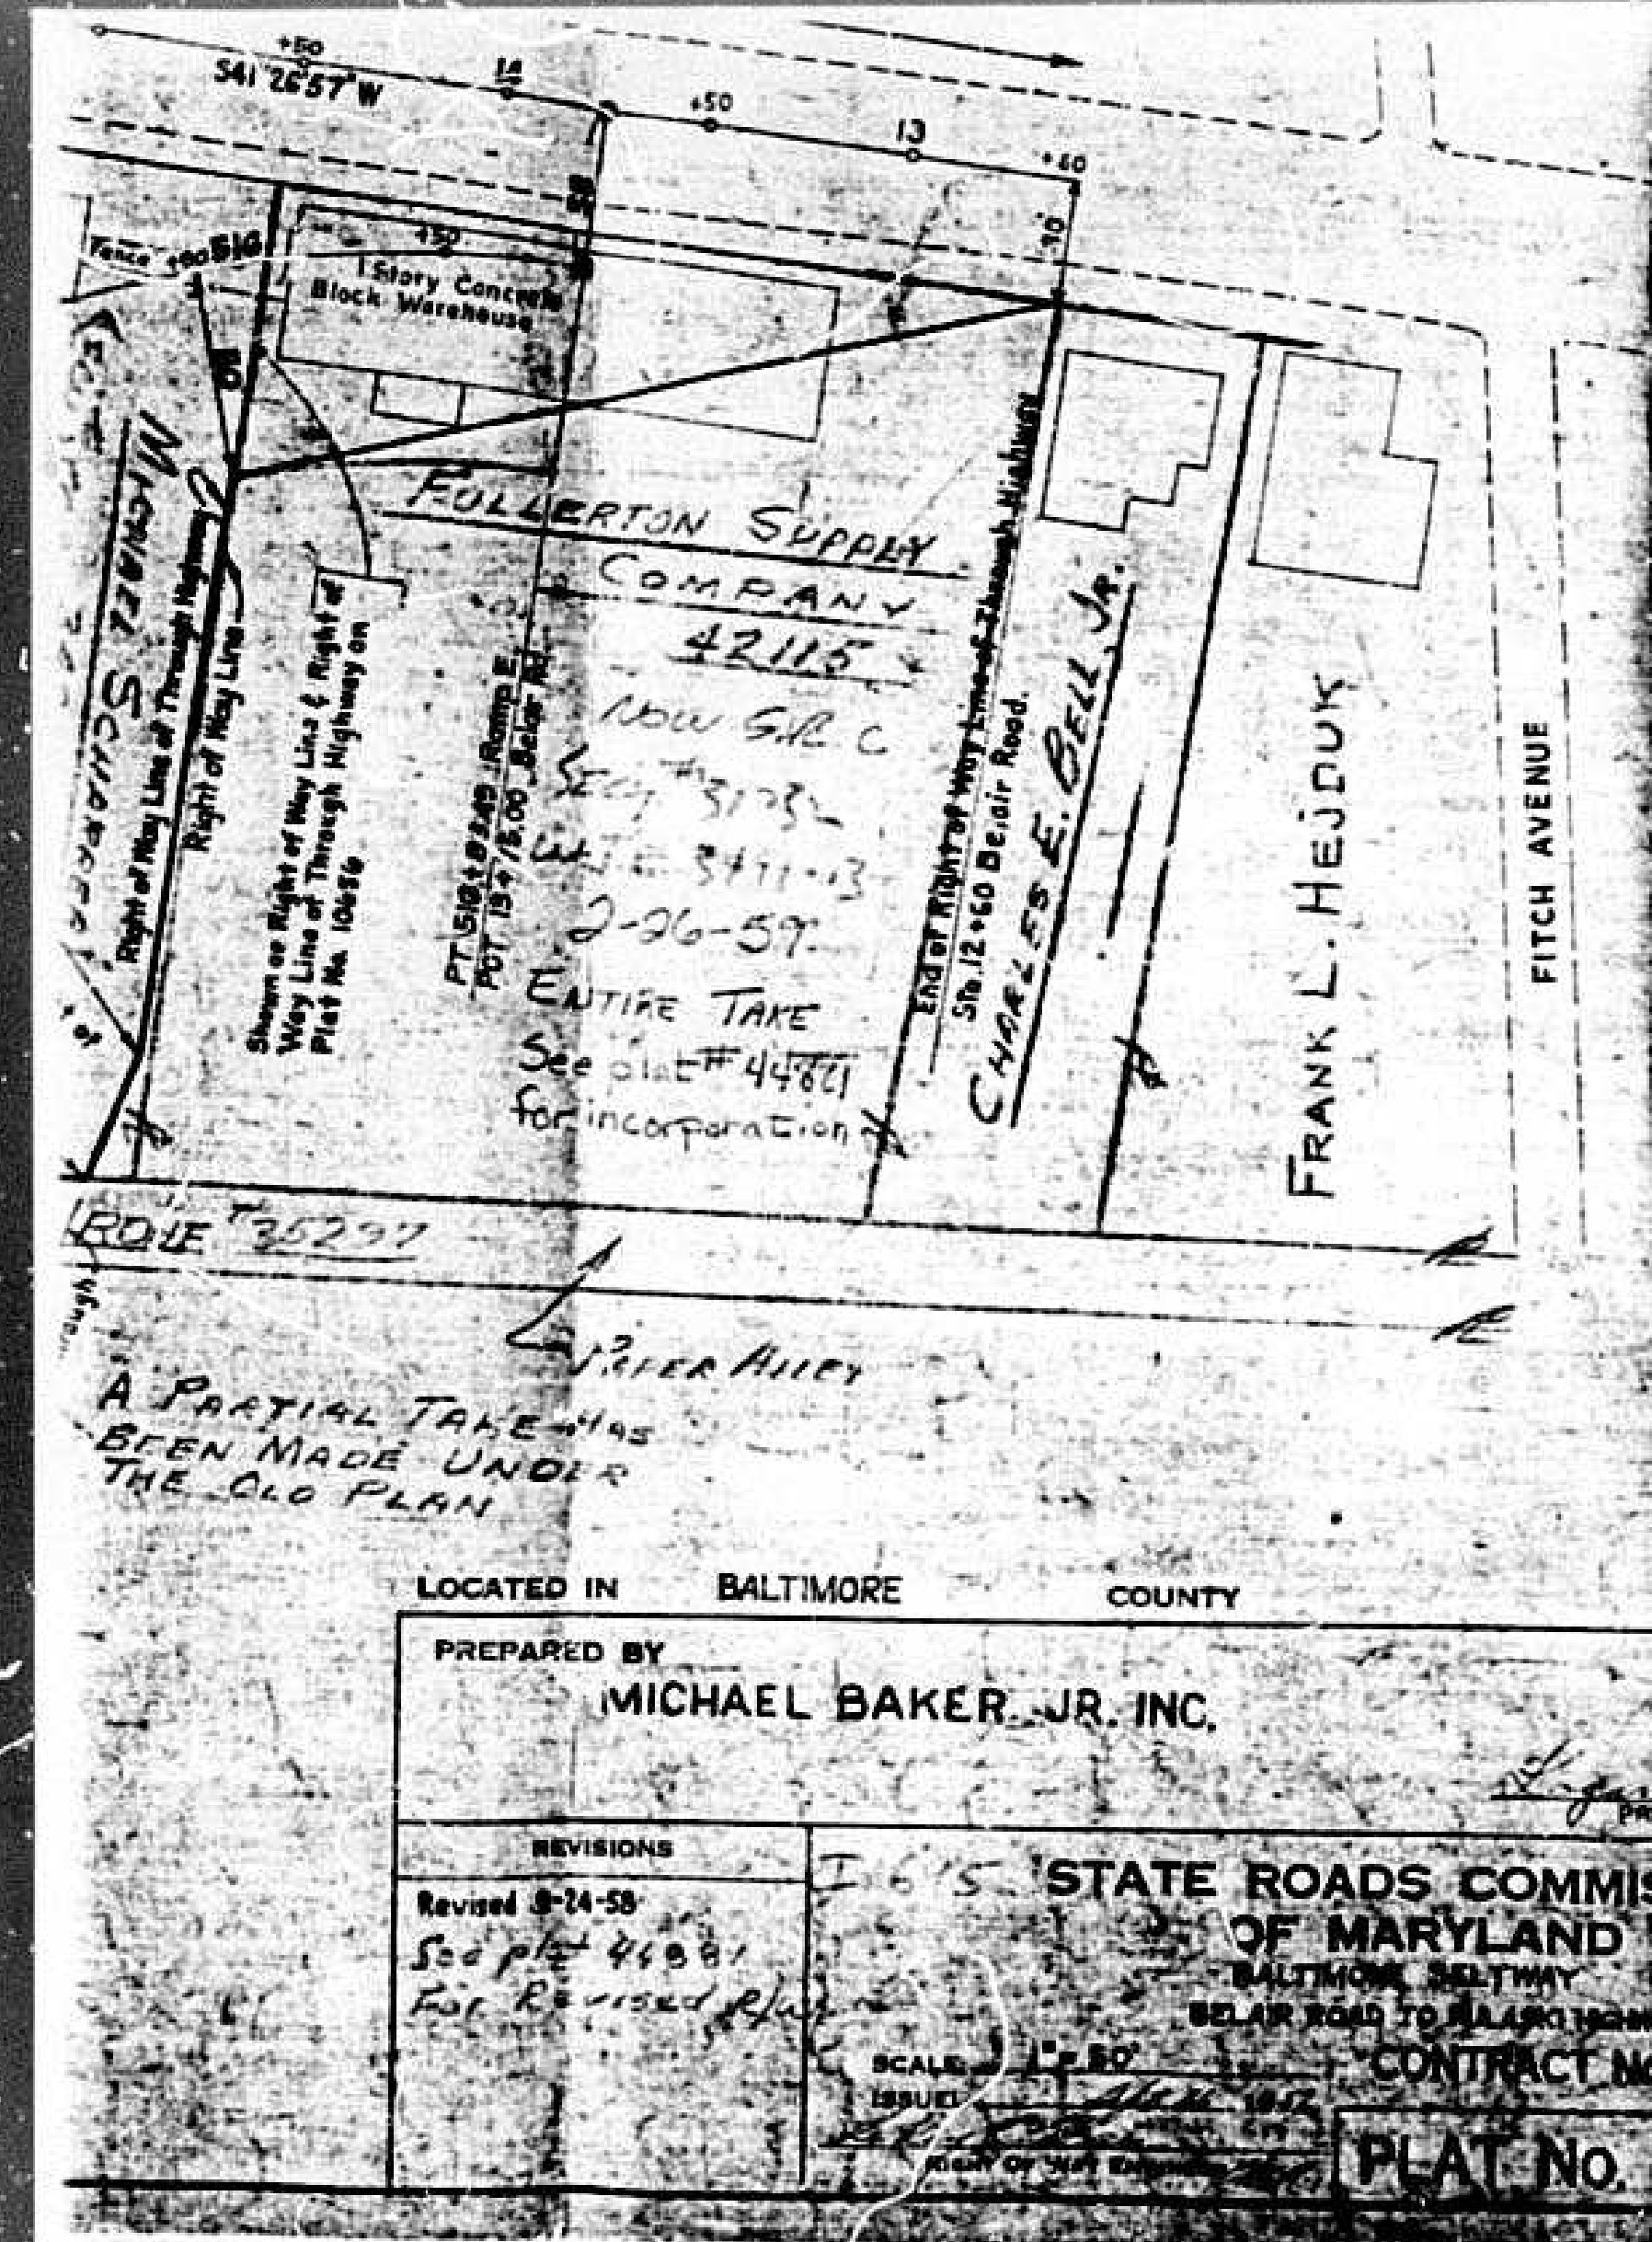 +50
S41°26'57"W
14
+50
13
+60
90'
Fence
+00
516
+50
1 Story Concrete
Block Warehouse
MICHAEL SCHAEFER
Right of Way Line of Through Highway
Right of Way Line
Shown as Right of Way Line & Right of
Way Line of Through Highway on
Plat No. 10656
PT 518+83.49 Ramp E
POT 13+75.00 Belair Rd.
FULLERTON SUPPLY
COMPANY
42115
NOW S.R.C
2-26-59
ENTIRE TAKE
See plat #
for incorporation
End of Right of Way Line of Through Highway
Sta. 12+60 Belair Road.
CHARLES E. BELL, JR.
FRANK L. HEJDUK
FITCH AVENUE
#35297
PAPER ALLEY
A PARTIAL TAKE HAS
BEEN MADE UNDER
THE OLD PLAN
LOCATED IN BALTIMORE COUNTY
PREPARED BY
MICHAEL BAKER JR. INC.
REVISIONS
Revised 9-24-58
See plat
For Revised R/W
I 695
STATE ROADS COMMIS
OF MARYLAND
BALTIMORE BELTWAY
BELAIR ROAD TO PULASKI HIGHW
SCALE 1"=50'
CONTRACT NO
ISSUED
RIGHT OF WAY ENGINEER
PLAT No.